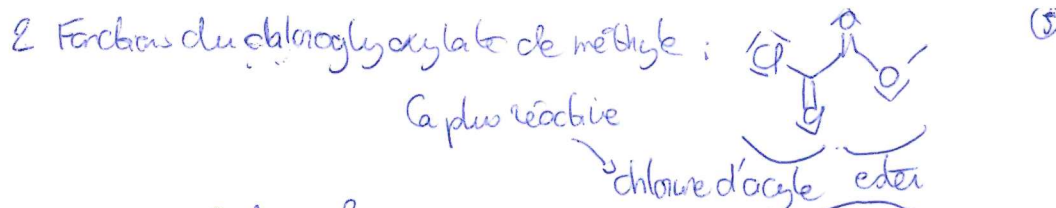 2 Fonctions du chloroglyoxylate de méthyle :
O
Cl
O
O
la plus réactive
chlorure d'acyle ester